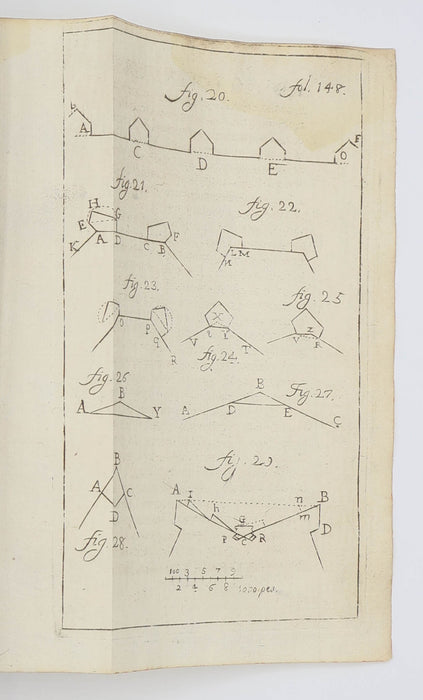 fig. 20. fol. 148.
A C D E O F
fig. 21.
H G
E
K A D C B F
fig. 22.
L M
fig. 23.
O P
q
R
X
V Y T
fig. 24.
fig. 25
Z
V R
fig. 26
B
A Y
Fig. 27.
B
A D E C
B
A C
D
fig. 28.
fig. 29.
A I h n B
G m
P C R D
100 3 5 7 9
2 4 6 8 1000 pes.